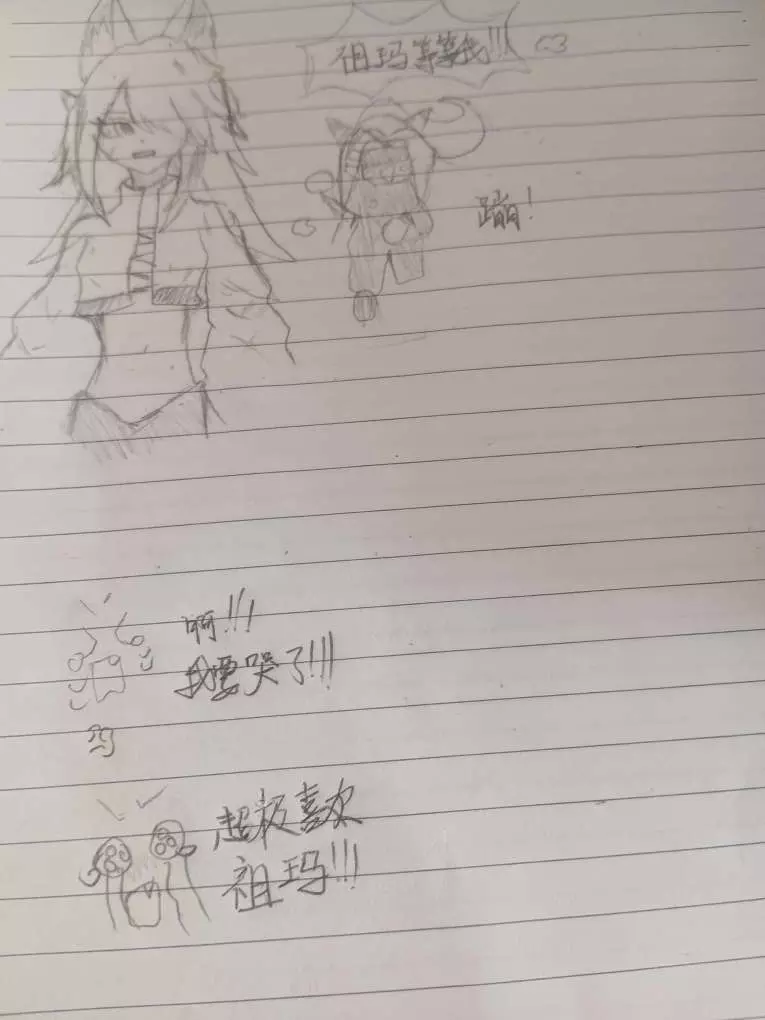 祖玛等等我!!!
<3
蹦!
啊!!!
我要哭了!!!!
超极喜欢
祖玛!!!